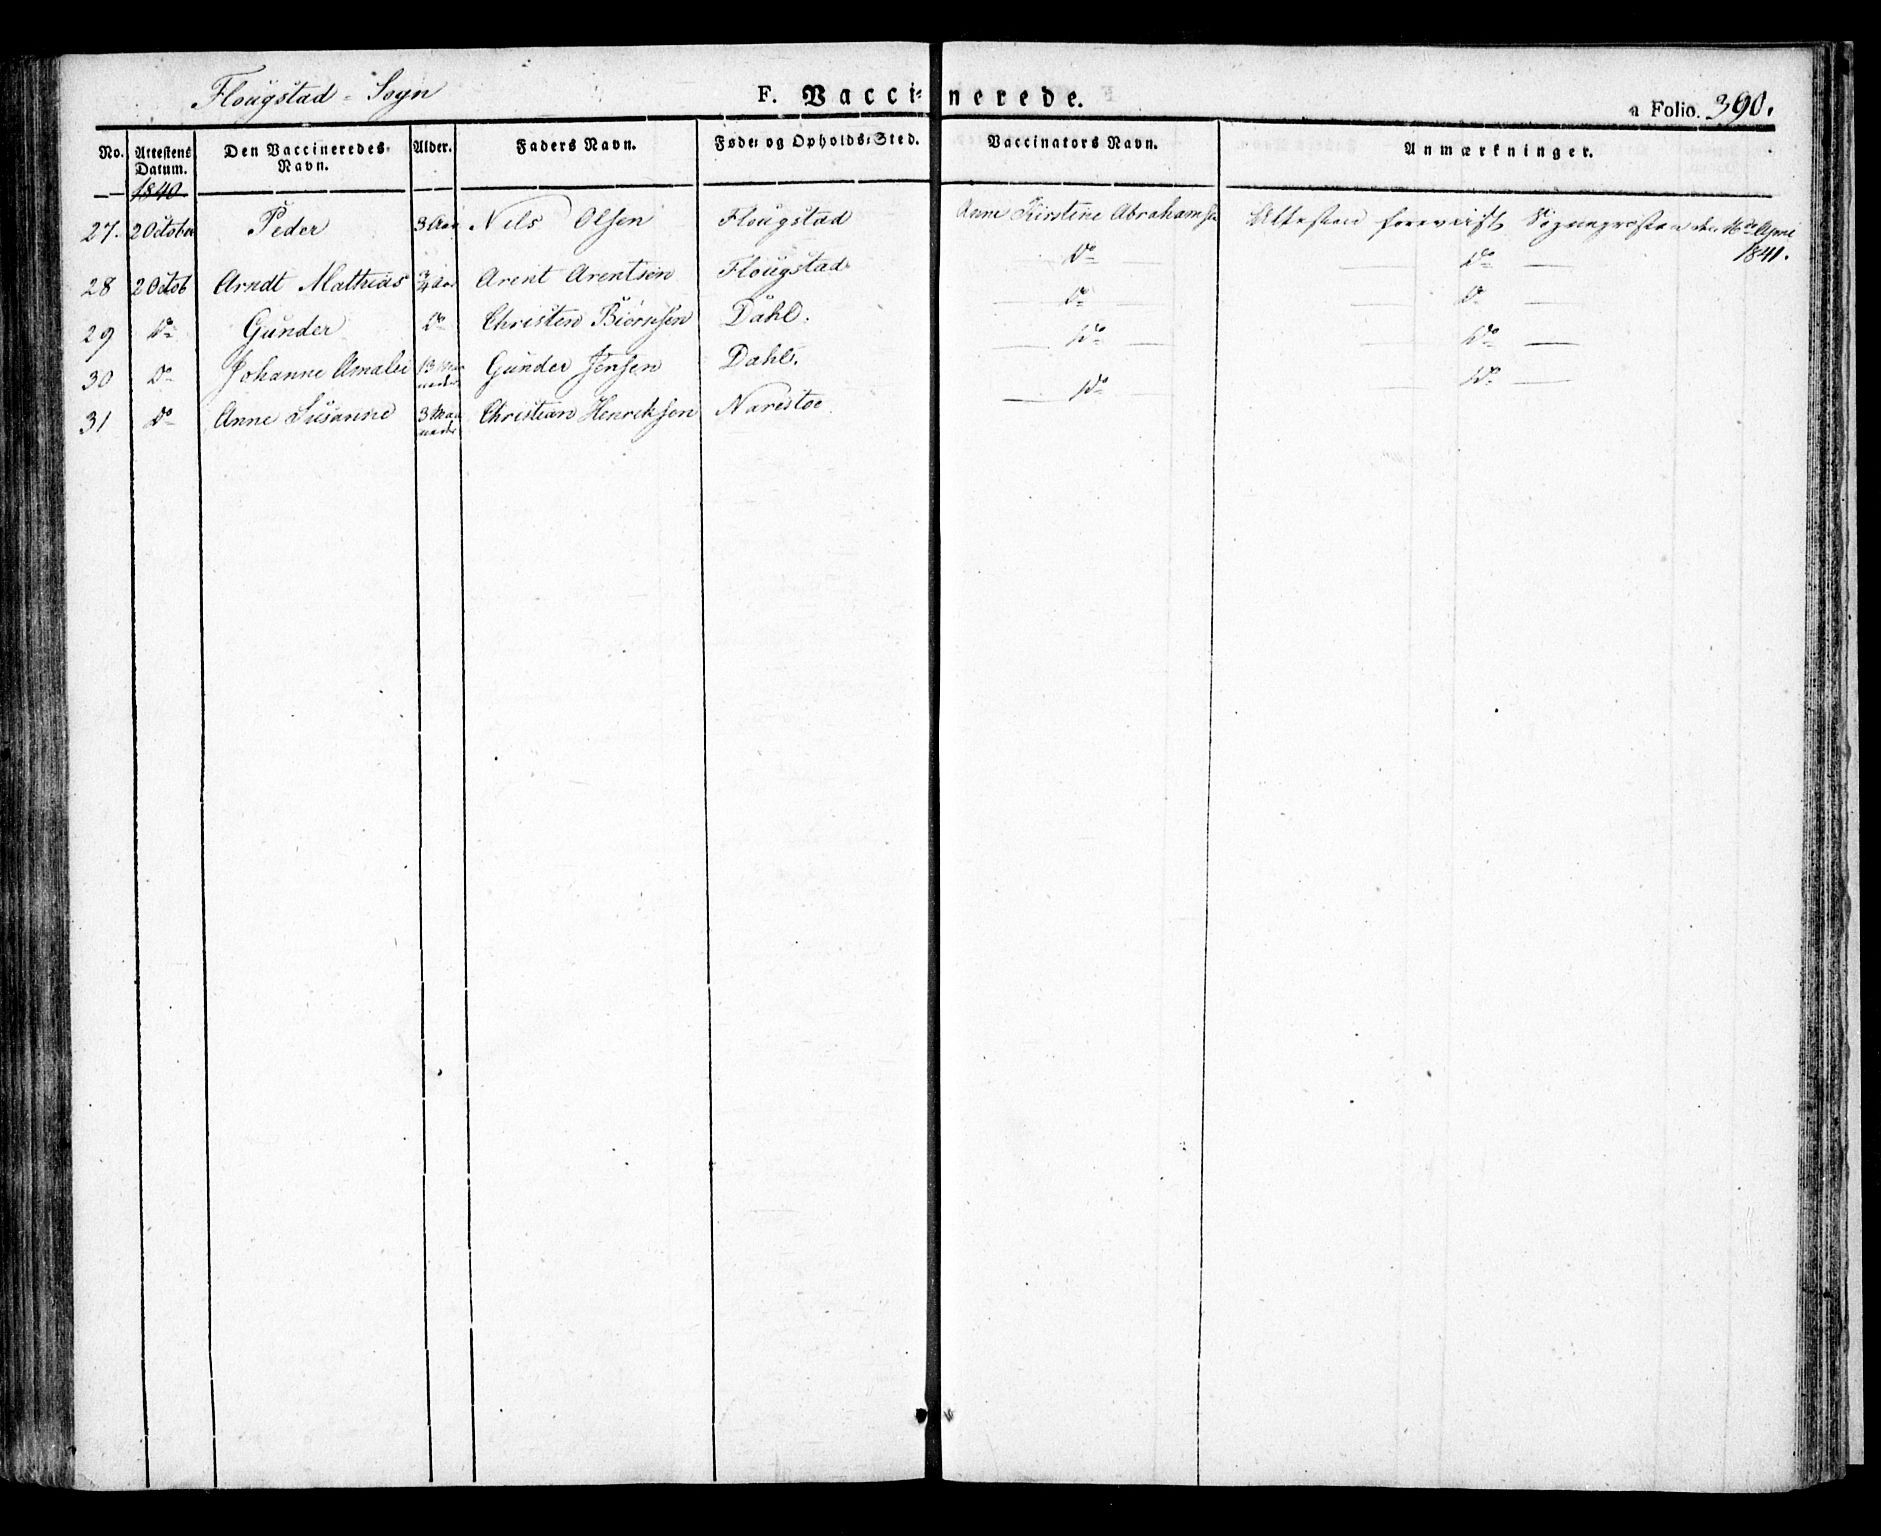 Flougstad - Sogn F. Vaccinerede. Folio. 390.
No. Attestens Datum. Den Vaccineredes Navn. Alder. Faders Navn. Føde- og Opholds-Sted. Vaccinators Navn. Anmærkninger.
1840
27. 2 October Peder 3 Aar Nils Olsen Flougstad Anne Kirstine Abrahams Attesten foreviist Sognepræsten den 16de April 1841.
28 2 Octob Arndt Mathias 3/4 Aar Arent Arentsen Flougstad Do Do
29 Do Gunder Do Christen Biørnsen Dahl. Do Do
30 Do Johanne Amalie 13 Maaneder Gunder Jensen Dahl. Do Do
31 Do Anne Susanne 3 Maaneder Christian Henriksen Narestøe Do Do